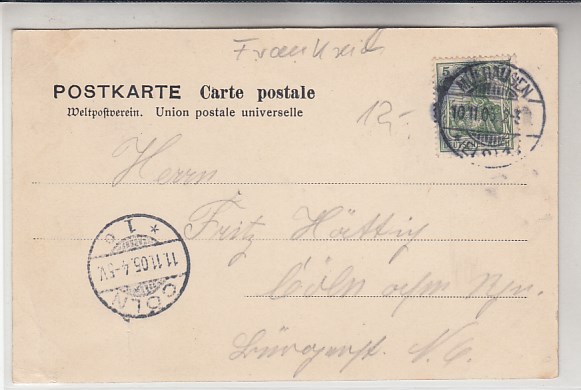 Frankreich
POSTKARTE Carte postale
Weltpostverein. Union postale universelle
12.-
5
MÜLHAUSEN
10.11.05
Herrn
Fritz Hättig
Cöln
Bürgerst. N.
* 1 c
11.11.05.4-5V.
CÖLN